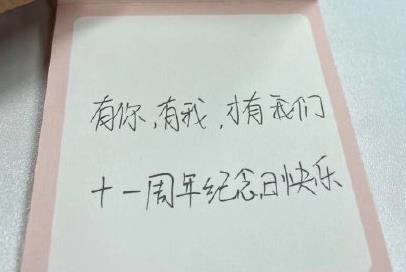 有你,有我,才有我们
十一周年纪念日快乐